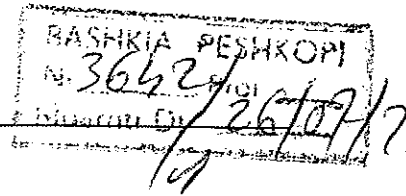 BASHKIA PESHKOPI
Nr. 3642/1 Prot
Dt. 26/07/2